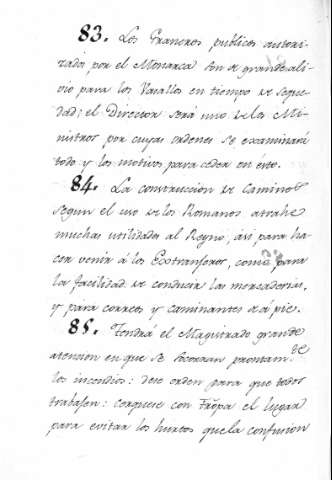 83. Los Graneros publicos autori-
zados por el Monarca son de grande ali-
vio para los Vasallos en tiempo de seque-
dad; el Director será uno de los Mi-
nistros por cuyas ordenes se examinará
todo y los motivos para ceder en esto.
84. La construccion de caminos
segun el uso de los Romanos atrahe
muchas utilidades al Reyno, asi para ha-
cer venir á los Extranferos, como para
la facilidad de conducir las mercaderias,
y para correos y caminantes de á pie.
85. Tendrá el Magistrado grande
atencion en que se socorran prontam.te
los incendios: dese orden para que todos
trabajen: cerquese con Tropa el lugar
para evitar los hurtos que la confusion